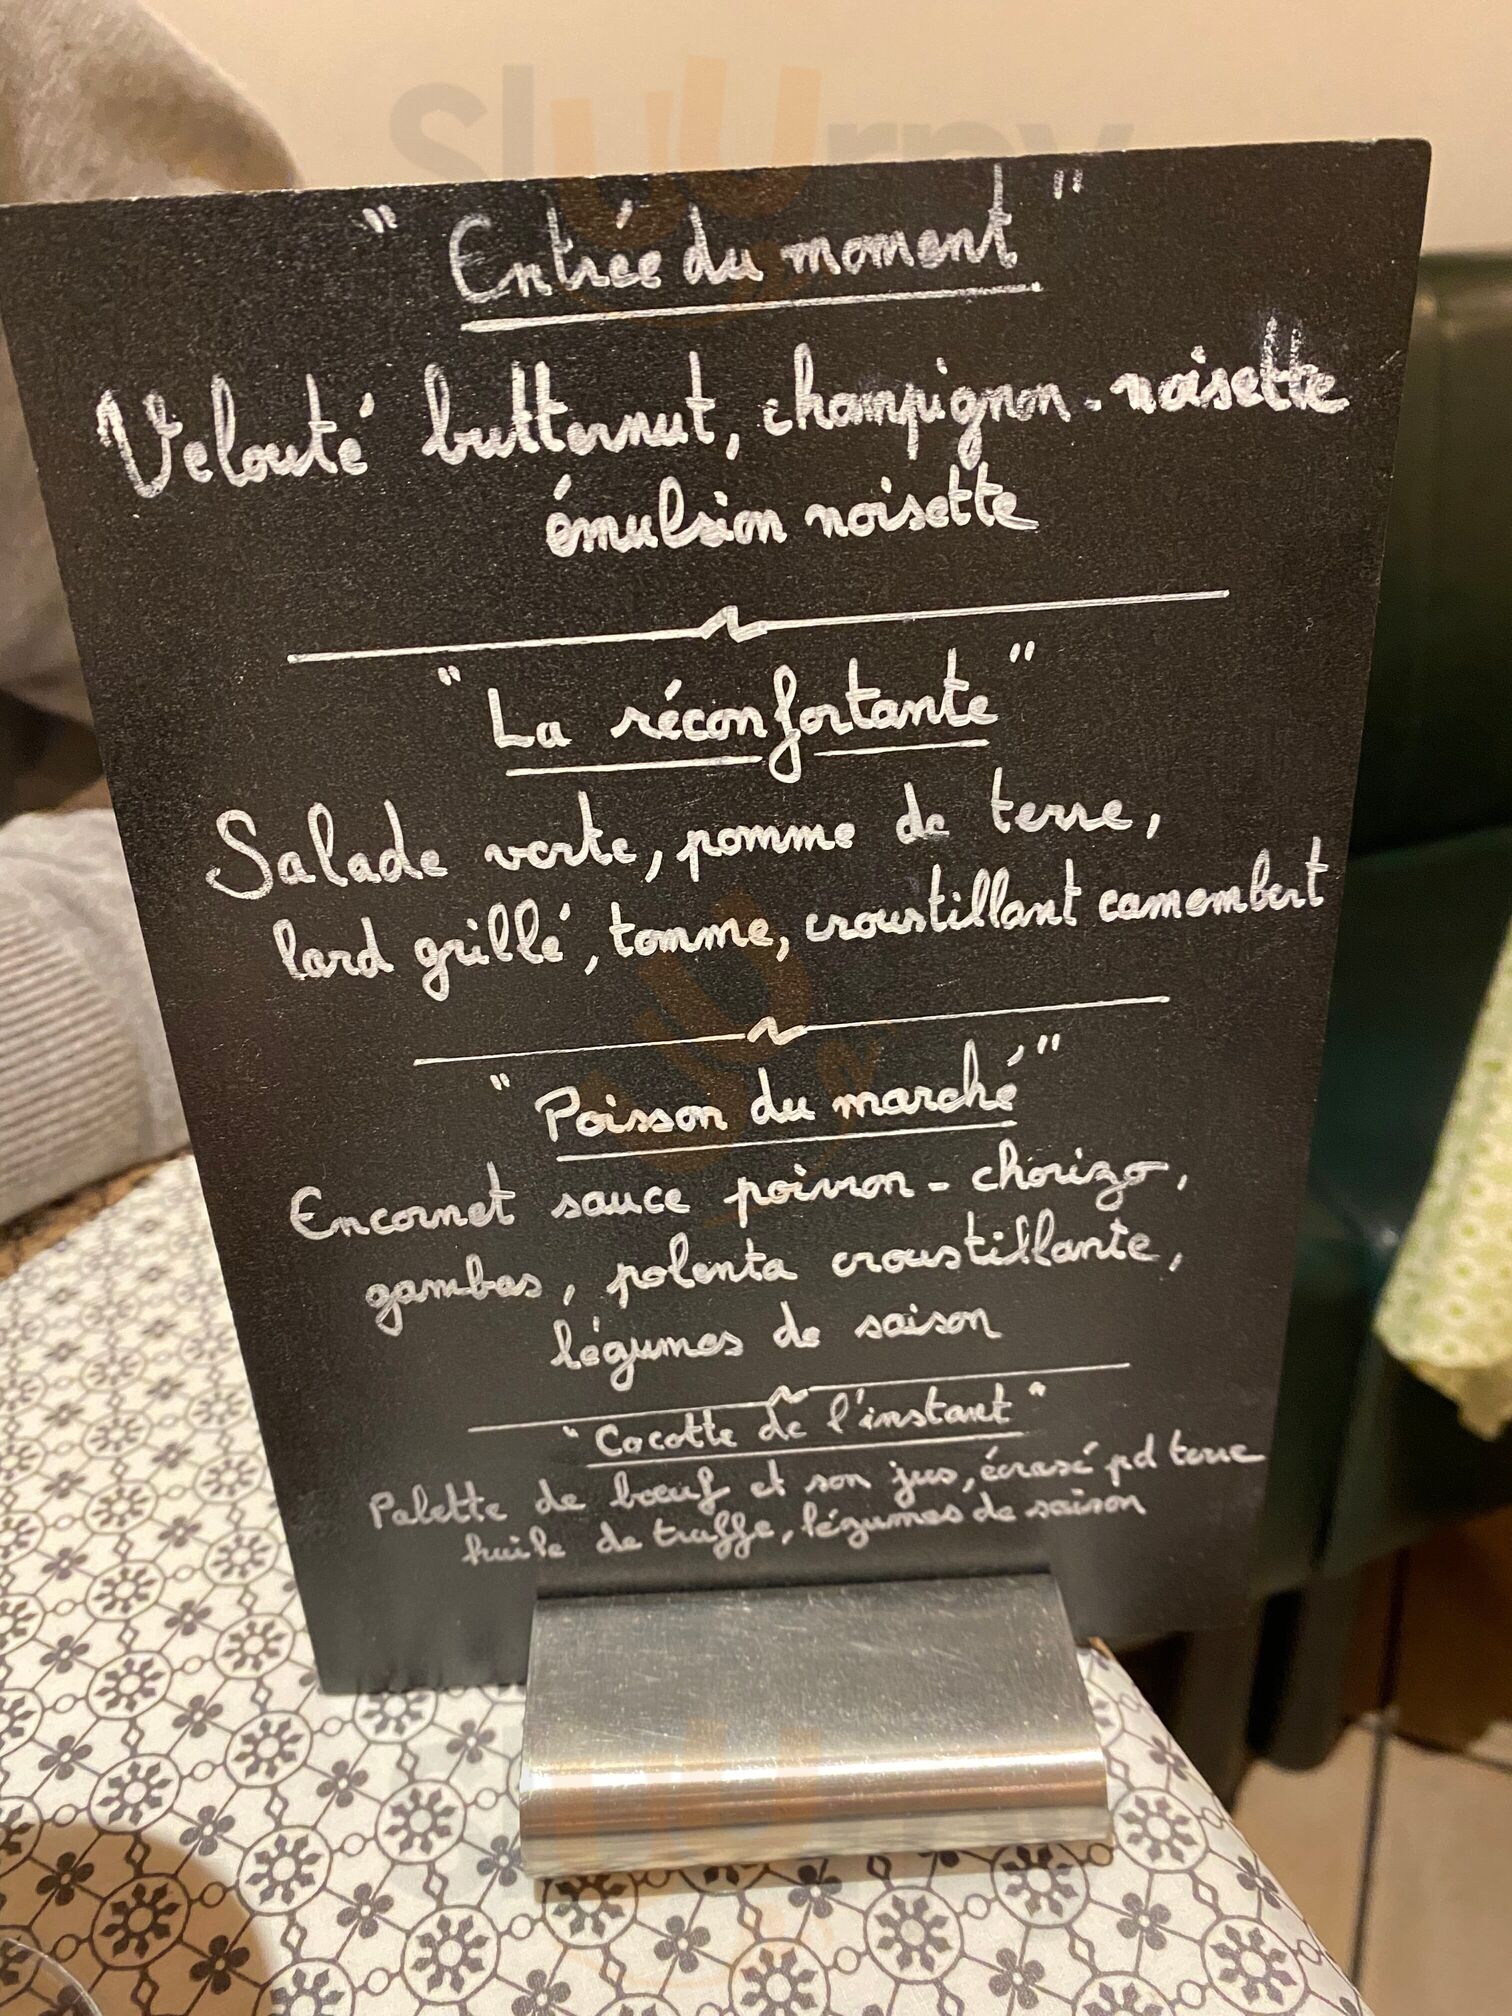 sluurpy
" Entrée du moment "
Velouté butternut, champignon - noisette
émulsion noisette
" La réconfortante "
Salade verte, pomme de terre,
lard grillé, tomme, croustillant camembert
" Poisson du marché "
Encornet sauce poivron - chorizo,
gambas, polenta croustillante,
légumes de saison
" Cocotte de l'instant "
Palette de bœuf et son jus, écrasé pd terre
huile de truffe, légumes de saison